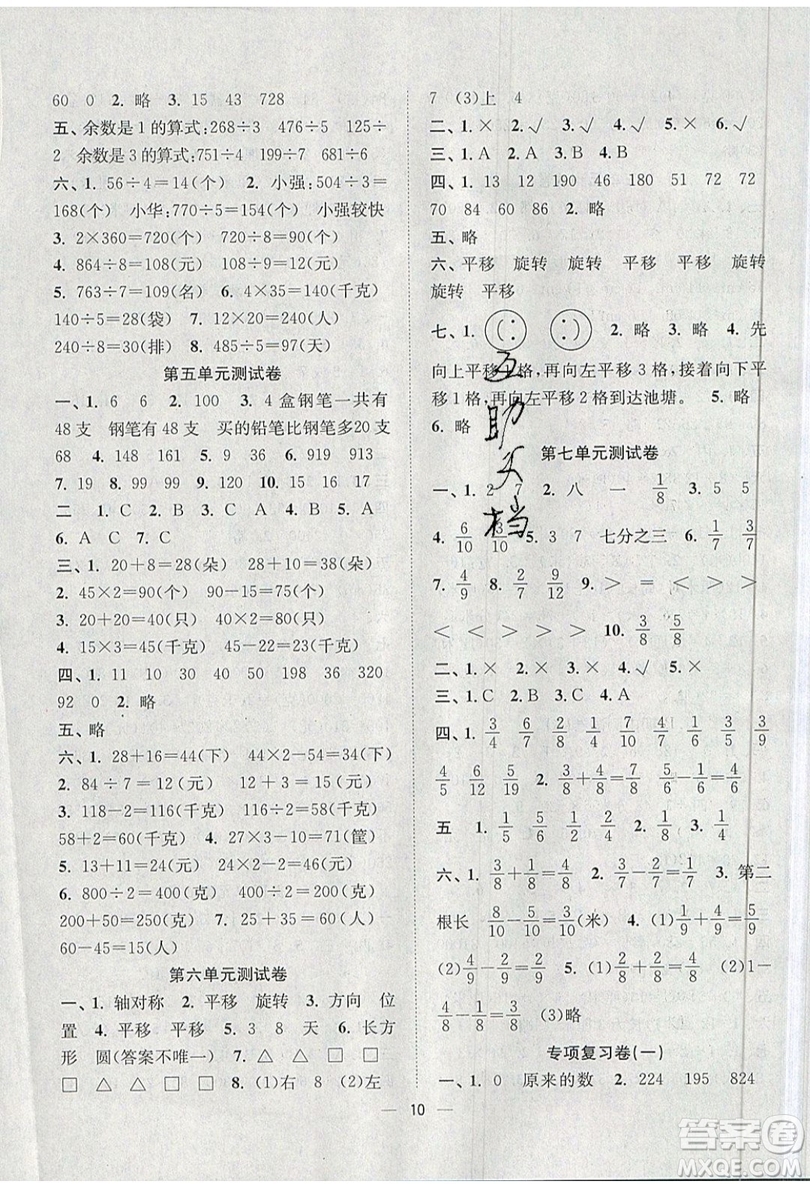 60 0 2. 略 3. 15 43 728
五、余数是 1 的算式:268÷3 476÷5 125÷
2 余数是 3 的算式:751÷4 199÷7 681÷6
六、1. 56÷4=14(个) 2. 小强:504÷3=
168(个) 小华:770÷5=154(个) 小强较快
3. 2×360=720(个) 720÷8=90(个)
4. 864÷8=108(元) 108÷9=12(元)
5. 763÷7=109(名) 6. 4×35=140(千克)
140÷5=28(袋) 7. 12×20=240(人)
240÷8=30(排) 8. 485÷5=97(天)
第五单元测试卷
一、1. 6 6 2. 100 3. 4 盒钢笔一共有
48 支 钢笔有 48 支 买的铅笔比钢笔多20 支
68 4. 40 41 5. 9 49 6. 919 913
7. 19 8. 88 9. 129 10. 15 60
二 1. C 2. B 3. C 4. A 5. B
6. A C 7. C
三、1. 20+8=28(朵) 20+28=48(朵)
2. 45×2=90(只) 90-15=75(只)
3. 20+20=40(只) 40×2=80(只)
4. 15×3=45(千克) 45-22=23(千克)
四、1. 11 10 30 40 50 198 36 320
92 0 2. 略
五、略
六、1. 28+16=44(下) 44×2-54=34(下)
2. 84÷7=12(元) 12+3=15(元)
3. 118-2=116(千克) 116÷2=58(千克)
58+2=60(千克) 4. 27×3-10=71(筐)
5. 13+11=24(元) 24×2-22=26(元)
6. 800÷4=200(克) 100÷2=50(克)
200+50=250(克) 7. 25+35=60(元)
60-45=15(元)
第六单元测试卷
一、1. 轴对称 2. 平移 旋转 3. 方向 位
置 4. 平移 平移 5. 3 8 天 6. 长方
形 圆(答案不唯一) 7. △ △ △ □
□ □ △ □ 8. (1)右 8 (2)左
7 (3)上 4
二、1. × 2. √ 3. √ 4. √ 5. × 6. √
三、1. A 2. A 3. B 4. B
四、1. 13 12 190 46 180 51 72 72
70 84 60 86 2. 略
五、略
六、平移 旋转 旋转 平移 平移 旋转
旋转 平移
七、1. 2. 略 3. 略 4. 先
向上平移1格,再向左平移 3 格,再向下平
移 1 格,再向左平移 2 格到达池塘。 5. 略
6. 略
互助文档
第七单元测试卷
一、1. 2 7 2. 八 一 1/8 3. 5 5
4. 6/10 3/10 5. 3 7 七分之三 6. 1/7 3/7
7. 4/9 8. 2/7 9/12 9. > = < > >
< < > > > 10. 3/8 5/8
二、1. × 2. × 3. × 4. √ 5. ×
三、1. C 2. B 3. C 4. A
四、1. 3/4 6/7 5/6 7/8 1/7 3/8 2/3 3/9
4/5 6/12 5/9 2. 3/8 + 4/8 = 7/8 5/6 - 1/6 = 4/6
五 1. 1/5 5/6 1/4 2/7 2. < > < >
六、1. 3/8 + 1/8 = 4/8 2. 3/7 - 2/7 = 1/7 3. 第二
根长 8/10 - 5/10 = 3/10 (米) 4. (1) 1/9 + 4/9 = 5/9
(2) 4/9 - 2/9 = 2/9 5. (1) 4/8 + 1/8 = 5/8 (2)
4/8 - 1/8 = 3/8 (3)略
专项复习卷(一)
一、1. 0 原来的数 2. 224 195 824
10
答案圈
MXQE.COM